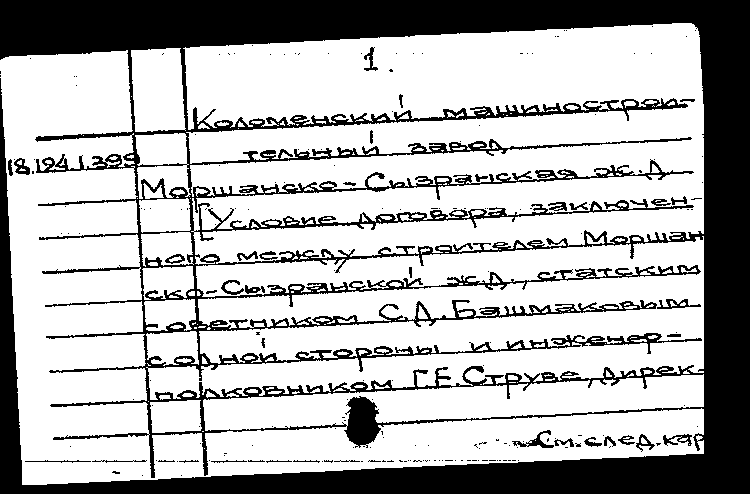 1.
Коломенский машинострои-
тельный завод
18.194.1.399
Моршанско-Сызранская ж.д.
[Условие договора, заключен-
ного между строителем Моршан
ско-Сызранской ж.д., статским
советником С.Д. Башмаковым
с одной стороны и инженер-
полковником Г.Е. Струве, дирек-
См. след. кар